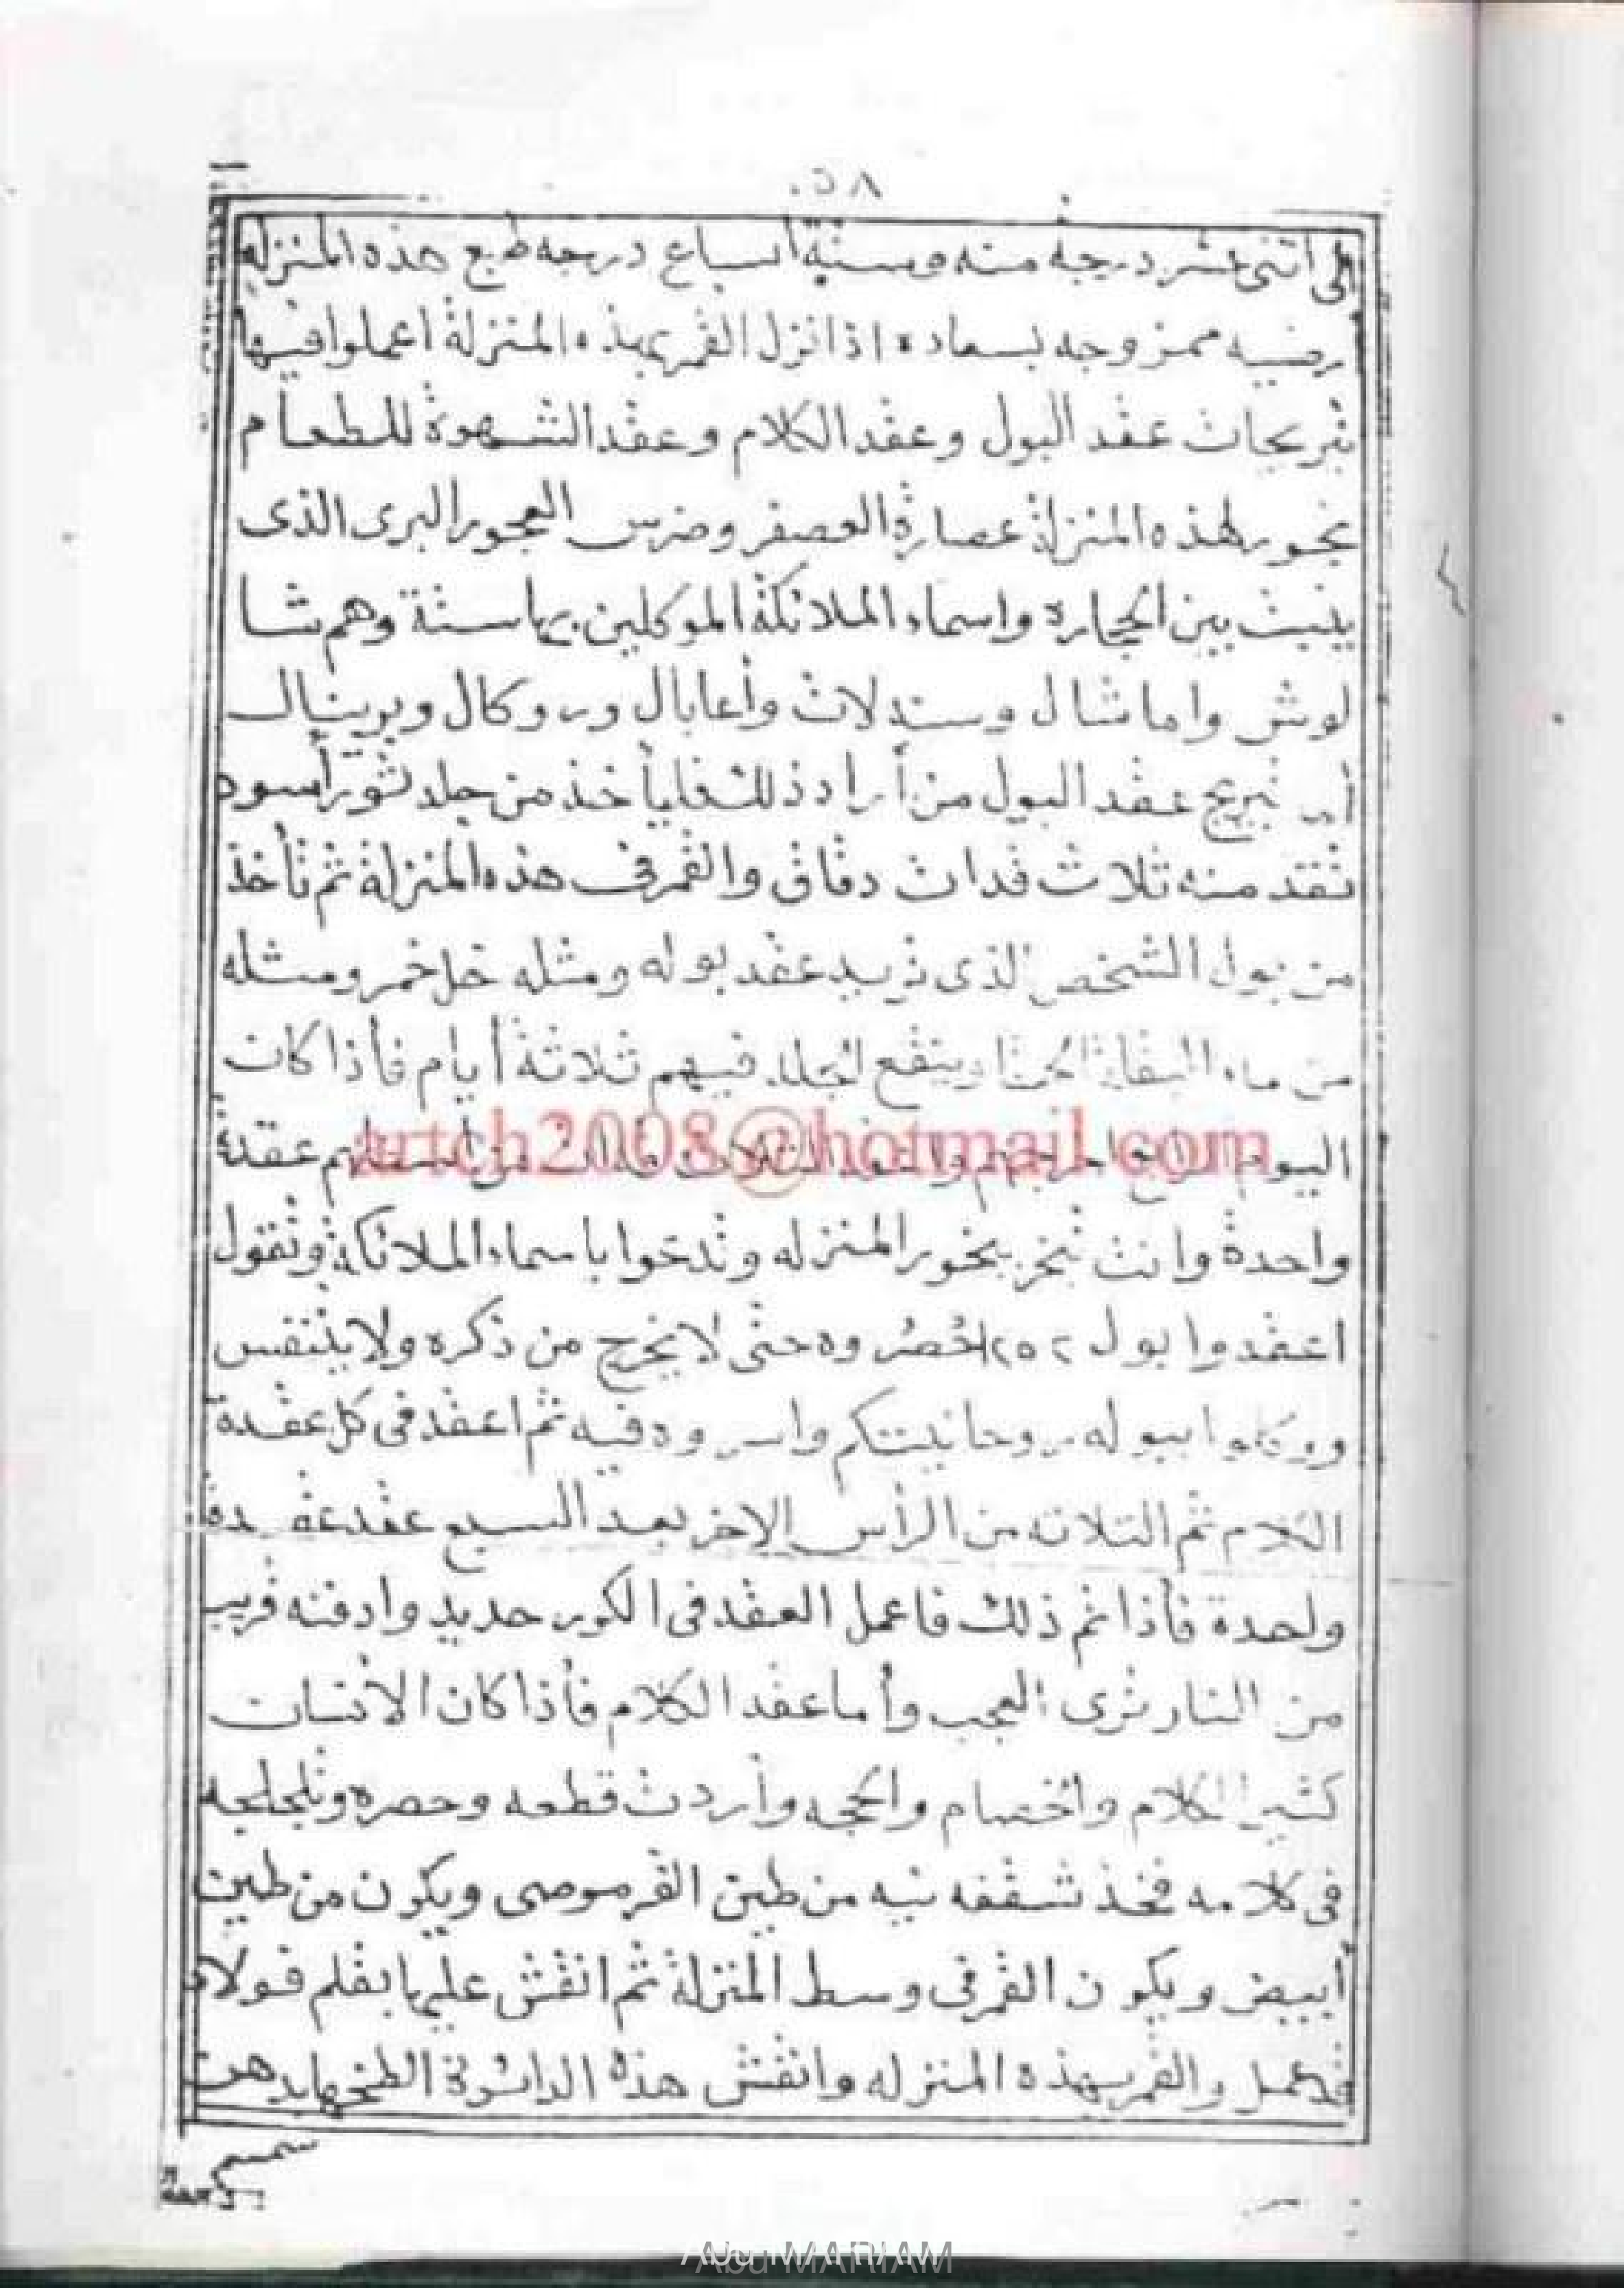 ٥٨
اثنى عشر درجه منه وستة اسباع درجه طبع هذه المنزله
ممزوجه بسعاده اذا نزل القمر بهذه المنزلة اعملوا فيها
نيريجات عقد البول وعقد الكلام وعقد الشهوة للطعام
بخور لهذه المنزلة عصارة العصفر وضرس العجور البرى الذى
ينبت بين الحجاره واسماء الملائكة الموكلين بها ستة وهم شا
لوش واما شال وسندلات وأعابال وروكال وبرينال
نيريج عقد البول من أراد ذلك فليأخذ من جلد ثور أسود
تقد منه ثلاث قدات دقاق والقمر فى هذه المنزلة ثم تأخذ
من بول الشخص الذى تريد عقد بوله ومثله خل خمر ومثله
من ماء وينقع الجلد فيهم ثلاثة أيام فأذا كان
اليوم عقدة
artch2008@hotmail.com
واحدة وانت تبخر ببخور المنزله وتدعوا باسماء الملائكة وتقول
اعقدوا بول ٢٥٢ احصروه حتى لا يخرج من ذكره ولا يتنفس
ووكلوا ببوله روحانيتكم فيه ثم اعقد فى كل عقدة
الكلام ثم الثلاثه من الرأس الاخر بعد السبع عقد عقدة
واحدة فأذا تم ذلك فاعمل العقد فى الكور حديد وادفنه قريب
من النار ترى العجب وأما عقد الكلام فأذا كان الانسان
كثير الكلام واخصام والحجه وأردت قطعه وحصره وتلجلجه
فى كلامه فخذ شقفه نيه من طين القرموصى ويكون من طين
أبيض ويكون القمر فى وسط المنزلة ثم انقش عليها بقلم فولاد
عمل والقمر بهذه المنزله وانقش هذه الدائرة الطخها بدهن
سمسم
Abu MARIAM